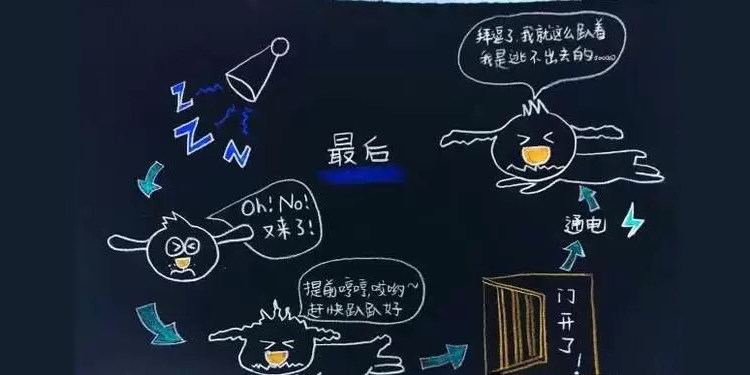 拜逗了,我就这么趴着
我是逃不出去的。。。。。
Z
Z
N
最后
Oh! No!
又来了!
通电
提前哼哼,哎哟~
赶快趴趴好
门开了!